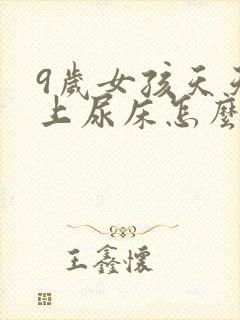 9歲女孩天天
上尿床怎麼
王鑫懷